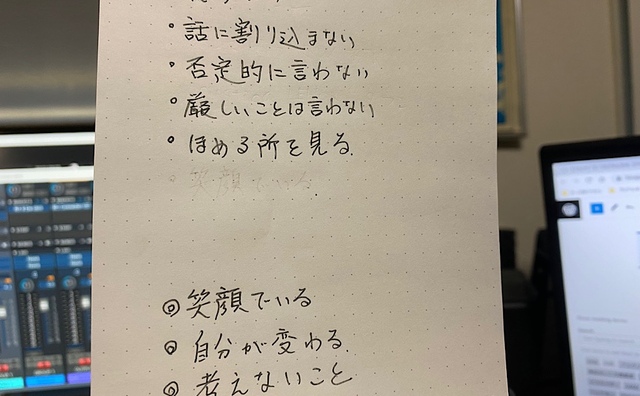 • 話に割り込まない
• 否定的に言わない
• 厳しいことは言わない
• ほめる所を見る
• 笑顔でいる
◎ 笑顔でいる
◎ 自分が変わる
◎ 考えないこと